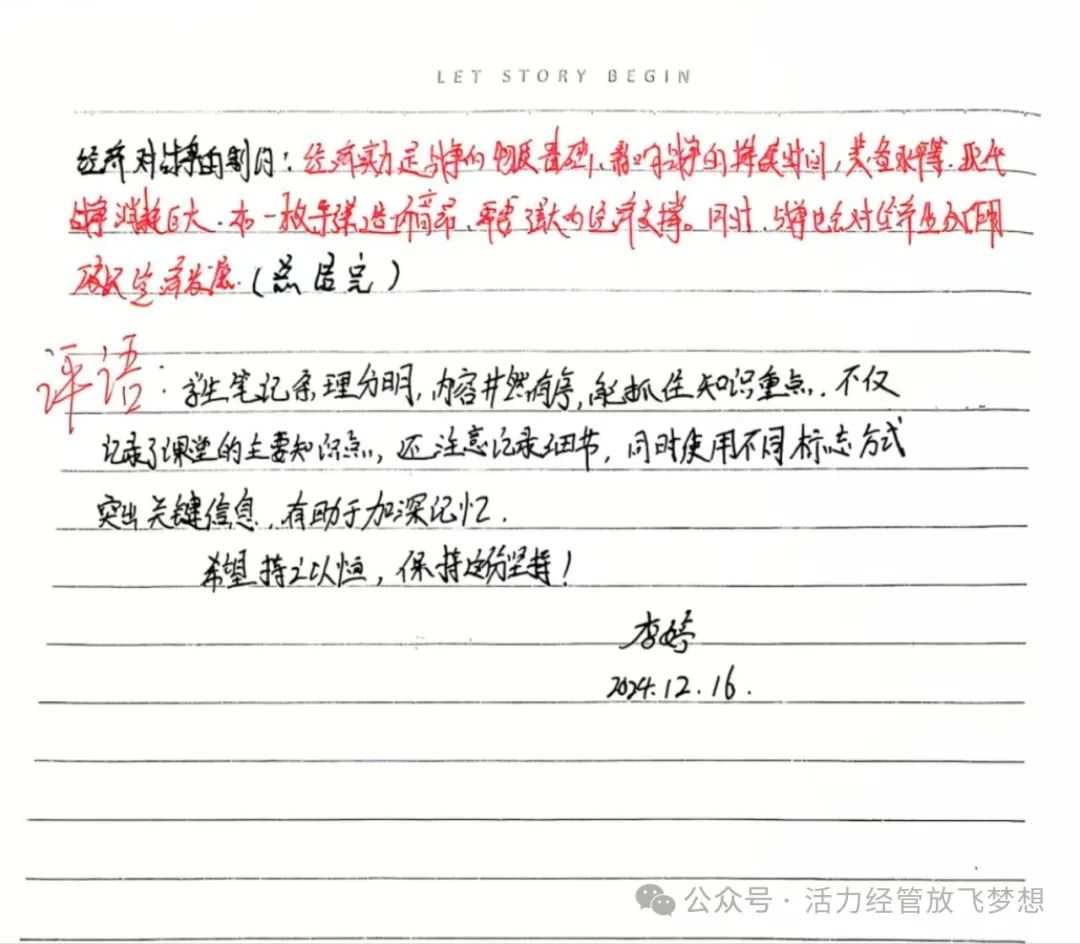 LET STORY BEGIN
经济对战争的制约：经济实力是战争的物质基础，影响战争的持续时间，装备水平等.现代
战争消耗巨大.如一枚导弹造价高昂，需要强大的经济支撑。同时，战争也会对经济
经济发展.（总居完）
评语：学生笔记条理分明，内容井然有序，能抓住知识重点.不仅
记录了课堂的主要知识点，还注意记录了细节，同时使用不同标志方式
突出关键信息，有助于加深记忆.
希望持之以恒，保持这份坚持！
李婷
2024.12.16.
公众号·活力经管放飞梦想